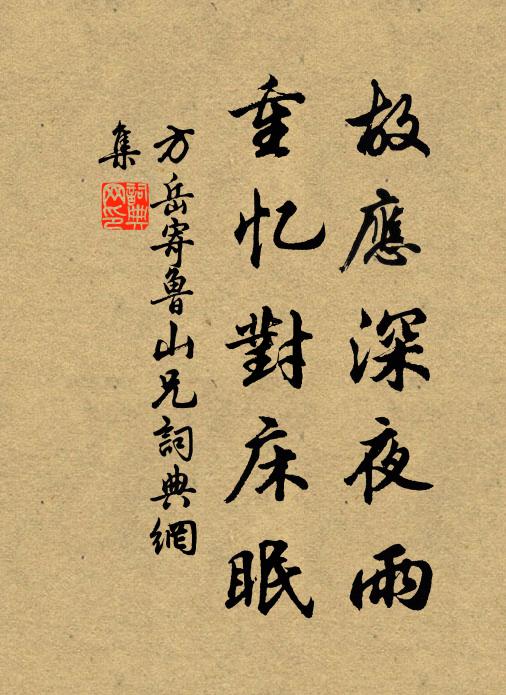 故應深夜雨
重忆對床眠
方岳寄魯山兄詞典網
集
詞典
网印